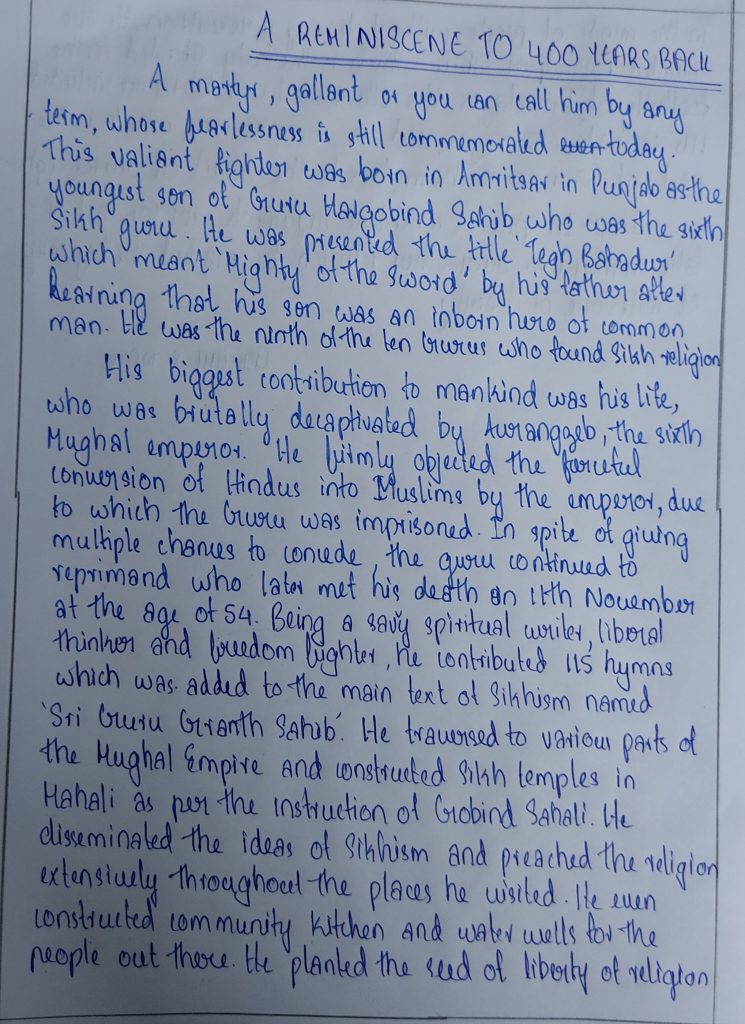 A REMINISCENE TO 400 YEARS BACK
A martyr, gallant or you can call him by any
term, whose fearlessness is still commemorated today.
This valiant fighter was born in Amritsar in Punjab as the
youngest son of Guru Hargobind Sahib who was the sixth
Sikh guru. He was presented the title 'Tegh Bahadur'
which meant 'Mighty of the Sword' by his father after
learning that his son was an inborn hero of common
man. He was the ninth of the ten Gurus who found Sikh religion
His biggest contribution to mankind was his life,
who was brutally decaptivated by Auranggzeb, the sixth
Mughal emperor. He firmly objected the forceful
conversion of Hindus into Muslims by the emperor, due
to which the Guru was imprisoned. In spite of giving
multiple chances to concede, the guru continued to
reprimand who later met his death on 11th November
at the age of 54. Being a savy spiritual writer, liberal
thinker and freedom fighter, he contributed 115 hymns
which was added to the main text of Sikhism named
'Sri Guru Granth Sahib'. He traversed to various parts of
the Mughal Empire and constructed Sikh temples in
Mahali as per the instruction of Gobind Sahali. He
disseminated the ideas of Sikhism and preached the religion
extensively throughout the places he visited. He even
constructed community kitchen and water wells for the
people out there. He planted the seed of liberty of religion